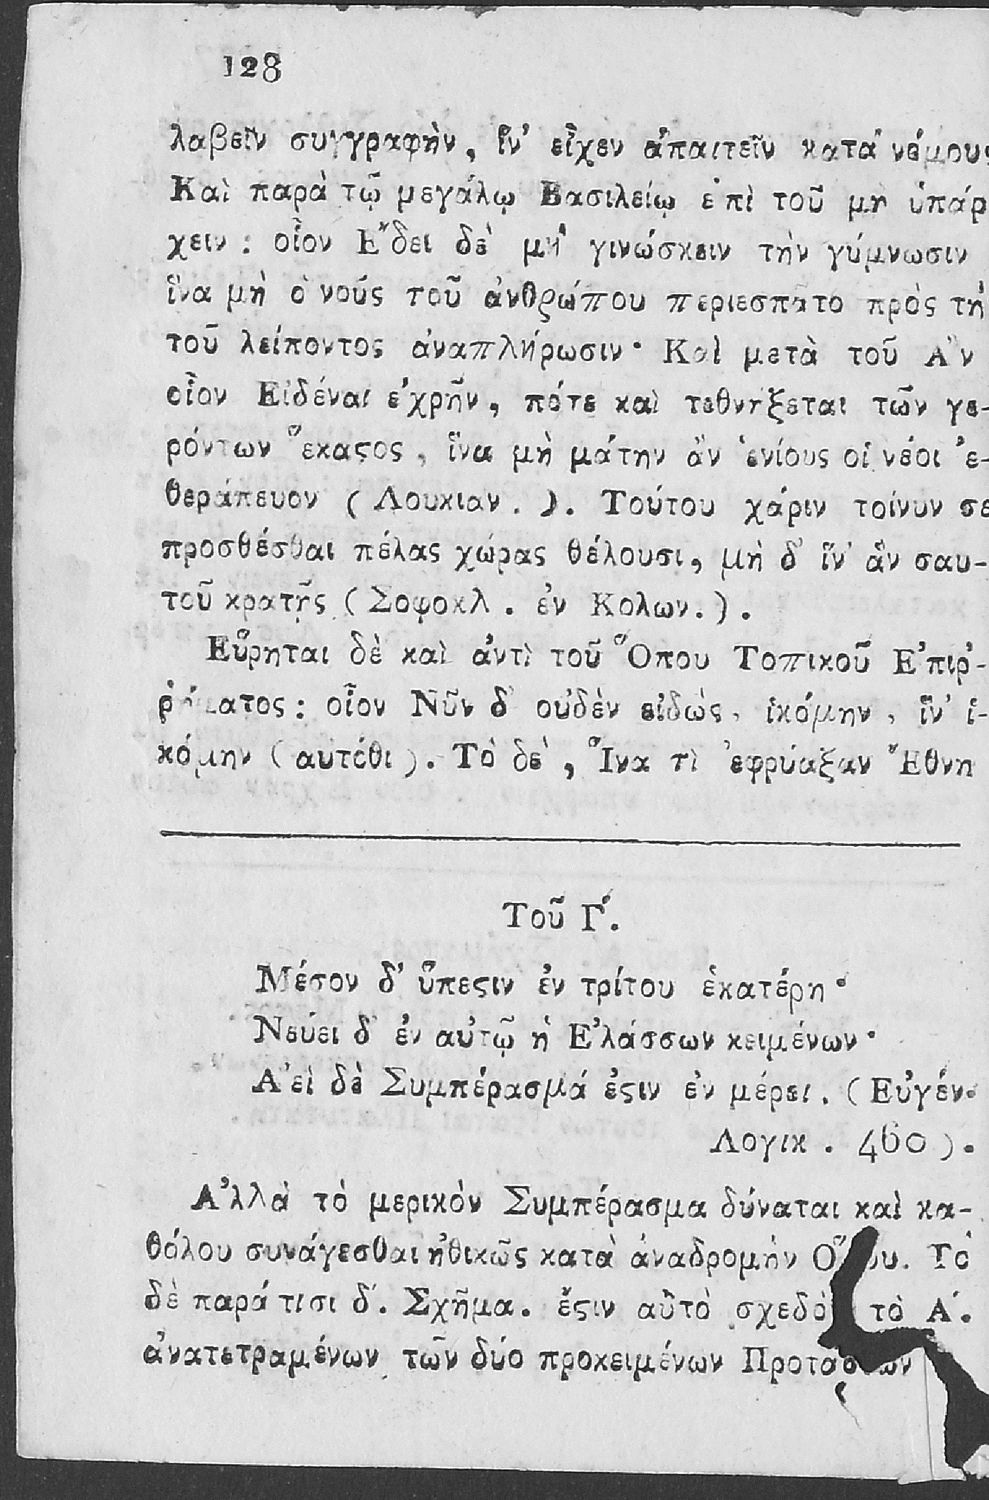 128
λαβεῖν συγγραφὴν, ἵν' εἶχεν ἀπαιτεῖν κατὰ νόμους
Καὶ παρὰ τῷ μεγάλῳ Βασιλείῳ ἐπὶ τοῦ μὴ ὑπάρ
χειν : οἷον Ἔδει δὲ μὴ γινώσκειν τὴν γύμνωσιν
ἵνα μὴ ὁ νούς τοῦ ἀνθρώπου περιεσπᾶτο πρὸς τὴ
τοῦ λείποντος ἀναπλήρωσιν· Καὶ μετὰ τοῦ Ἂν
οἷον Εἰδέναι ἐχρῆν, πότε καὶ τεθνήξεται τῶν γε-
ρόντων ἕκαϛος, ἵνα μὴ μάτην ἂν ἐνίους οἱ νέοι ἐ-
θεράπευον (Λουκιαν.). Τούτου χάριν τοίνυν σε
προσθέσθαι πέλας χώρας θέλουσι, μὴ δ' ἵν' ἂν σαυ-
τοῦ κρατῇς (Σοφοκλ. ἐν Κολων.).
Εὕρηται δὲ καὶ ἀντὶ τοῦ Ὅπου Τοπικοῦ Ἐπιῤ-
ῥήματος : οἷον Νῦν δ' οὐδὲν εἰδώς, ἱκόμην, ἵν' ἱ-
κόμην (αυτόθι). Τὸ δὲ, Ἵνα τὶ ἐφρύαξαν Ἔθνη
Τοῦ Γ'.
Μέσον δ' ὕπεϛιν ἐν τρίτου ἑκατέρῃ·
Νεύει δ' ἐν αὐτῷ ἡ Ἐλάσσων κειμένων·
Ἀεὶ δὲ Συμπέρασμά ἐϛιν ἐν μέρει. (Εὐγέν.
Λογικ. 460).
Ἀλλὰ τὸ μερικὸν Συμπέρασμα δύναται καὶ κα-
θόλου συνάγεσθαι ἠθικῶς κατὰ ἀναδρομὴν Τὸ
δὲ παρά τισι δ'. Σχῆμα. ἔϛιν αὐτὸ τὸ Α'.
ἀνατετραμένων τῶν δύο προκειμένων